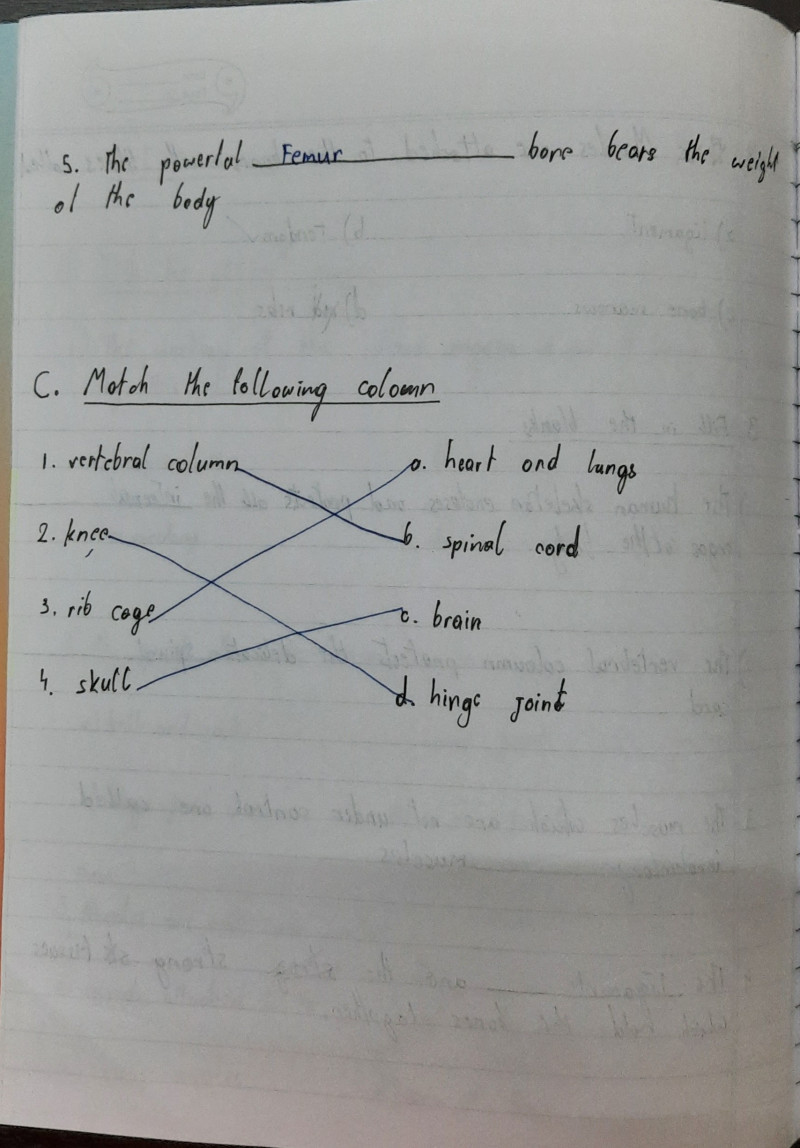 5. The powerful Femur bone bears the weight
of the body
C. Match the following coloumn
1. vertebral column a. heart and lungs
2. knee b. spinal cord
3. rib cage c. brain
4. skull d. hinge joint